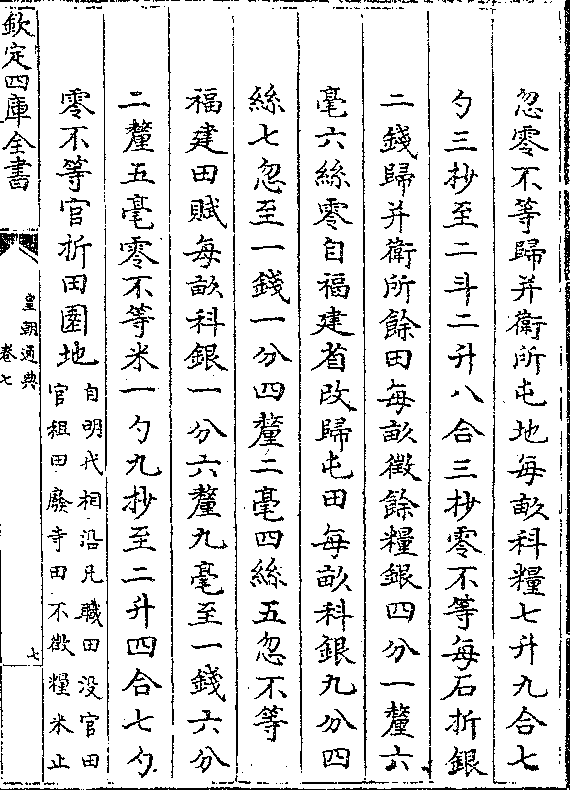 忽零不等歸并衛所屯地每畝科糧七升九合七
勺三抄至二斗二升八合三抄零不等每石折銀
二錢歸并衛所餘田每畝徵餘糧銀四分一釐六
毫六絲零自福建省改歸屯田每畝科銀九分四
絲七忽至一錢一分四釐二毫四絲五忽不等
福建田賦每畝科銀一分六釐九毫至一錢六分
二釐五毫零不等米一勺九抄至二升四合七勺
零不等官折田園地自明代相沿凡職田没官田
官租田廢寺田不徵糧米止
欽定四庫全書
皇朝通典
卷七
七